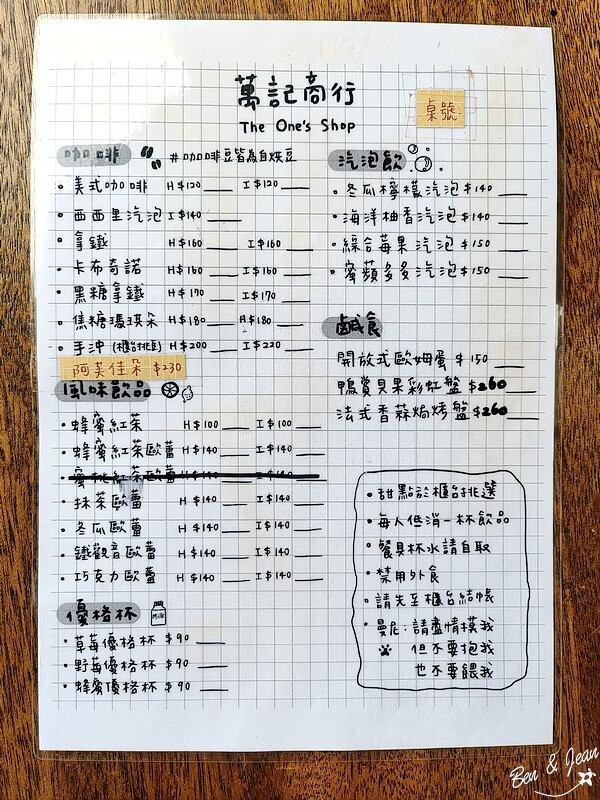 萬記商行
The One's Shop
桌號
咖啡 #咖啡豆皆為自烘豆
• 美式咖啡 H$120 ___ I$120 ___
• 西西里汽泡 I$140 ___
• 拿鐵 H$160 ___ I$160 ___
• 卡布奇諾 H$160 ___ I$160 ___
• 黑糖拿鐵 H$170 ___ I$170 ___
• 焦糖瑪琪朵 H$180 ___ H$180 ___
• 手沖(櫃台挑豆) H$200 ___ I$220 ___
阿芙佳朵 $230
風味飲品
• 蜂蜜紅茶 H$100 ___ I$100 ___
• 蜂蜜紅茶歐蕾 H$140 ___ I$140 ___
• 蜜桃紅茶歐蕾 H$140 ___ I$140 ___
• 抹茶歐蕾 H$140 ___ I$140 ___
• 冬瓜歐蕾 H$140 ___ I$140 ___
• 鐵觀音歐蕾 H$140 ___ I$140 ___
• 巧克力歐蕾 H$140 ___ I$140 ___
優格杯 Milk
• 草莓優格杯 $90 ___
• 野莓優格杯 $90 ___
• 蜂蜜優格杯 $90 ___
汽泡飲
• 冬瓜檸檬汽泡 $140 ___
• 海洋柚香汽泡 $140 ___
• 綜合莓果汽泡 $150 ___
• 蜜蘋多多汽泡 $150 ___
鹹食
開放式歐姆蛋 $150 ___
鴨賞貝果彩虹盤 $260 ___
法式香蒜焗烤盤 $260 ___
• 甜點於櫃台挑選
• 每人低消一杯飲品
• 餐具杯水請自取
• 禁用外食
• 請先至櫃台結帳
• 曼尼:請盡情摸我
但不要抱我
也不要餵我
Ben & Jean